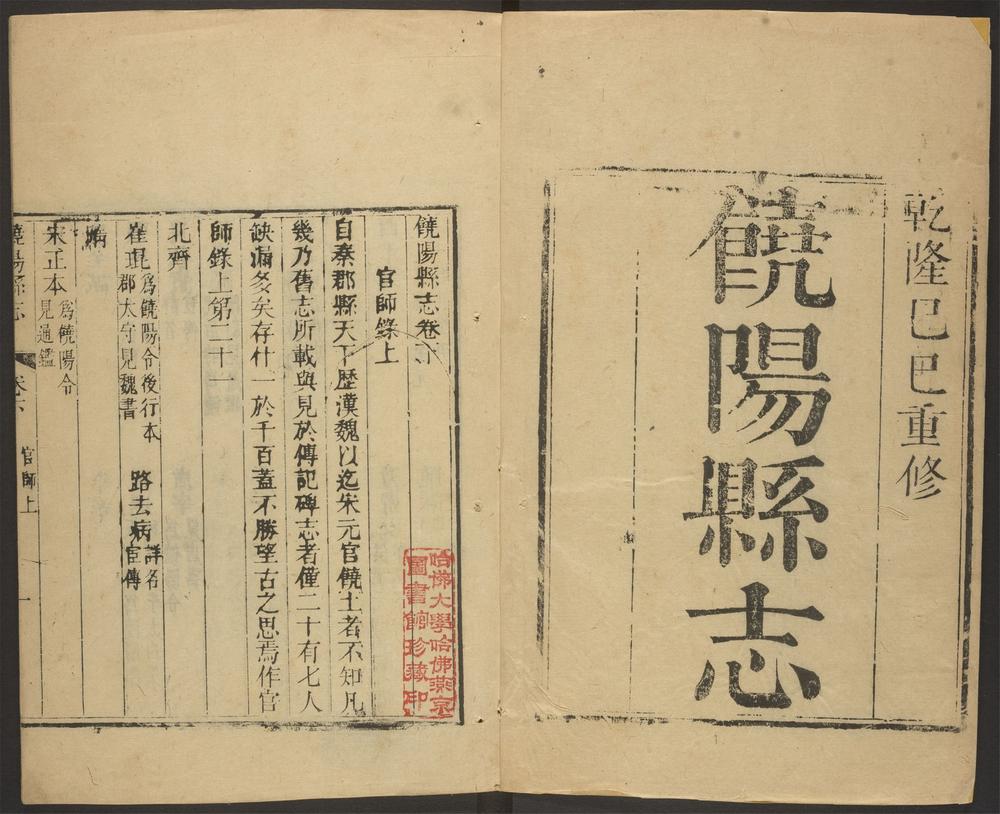 乾隆己巳重修
饒陽縣志
饒陽縣志卷下
官師錄上
自秦郡縣天下歷漢魏以迄宋元官饒土者不知凡
幾乃舊志所載與見於傳記碑志者僅二十有七人
缺漏多矣存什一於千百蓋不勝望古之思焉作官
師錄上第二十一
北齊
崔琨 為饒陽令後行本
郡太守見魏書
路去病 詳名
宦傳
隋
宋正本 為饒陽令
見通鑑
饒陽縣志 卷下 官師上 一
哈佛大學哈佛燕京
圖書館珍藏印